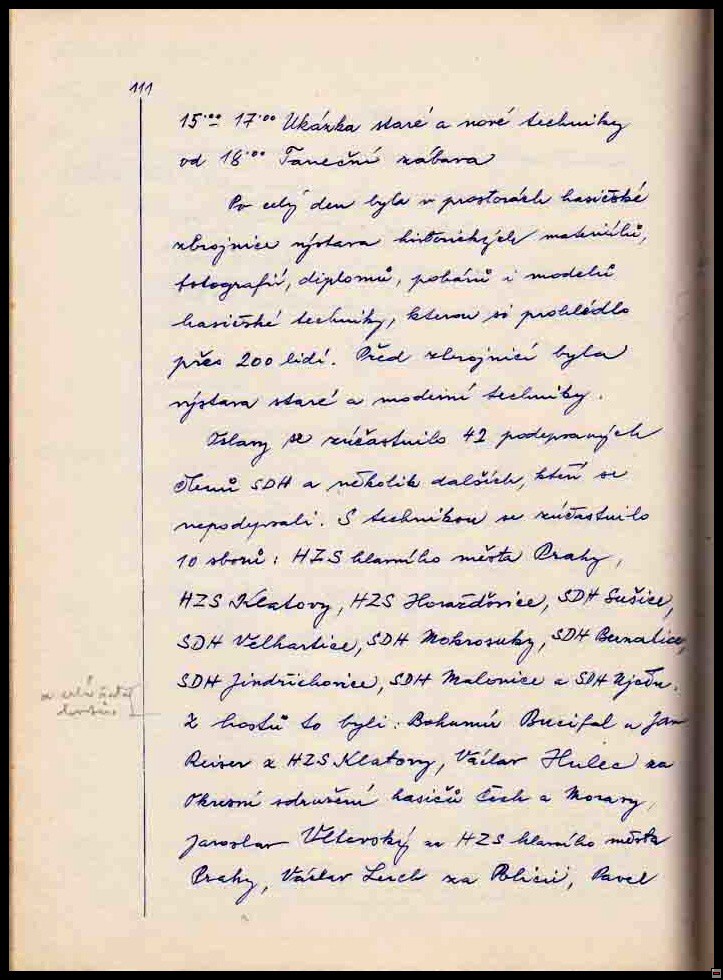 111
15·⁰⁰ 17·⁰⁰ Ukázka staré a nové techniky
od 18·⁰⁰ Taneční zábava
Po celý den byla v prostorách hasičské
zbrojnice výstava historických materiálů,
fotografií, diplomů, pohárů i modelů
hasičské techniky, kterou si prohlédlo
přes 200 lidí. Před zbrojnicí byla
výstava staré a moderní techniky.
Oslavy se zúčastnilo 42 podepsaných
členů SDH a několik dalších, kteří se
nepodepsali. S technikou se zúčastnilo
10 sborů: HZS hlavního města Prahy,
HZS Klatovy, HZS Horažďovice, SDH Sušice,
SDH Velhartice, SDH Mokrosuky, SDH Bernatice,
SDH Jindřichovice, SDH Malonice a SDH
Z hostů to byli: Bohumír Bucifal a Jan
Reiser z HZS Klatovy, Václav Hulec za
Okresní sdružení hasičů Čech a Moravy,
Jaroslav Vltavský za HZS hlavního města
Prahy, Václav Lerch za Policii, Pavel